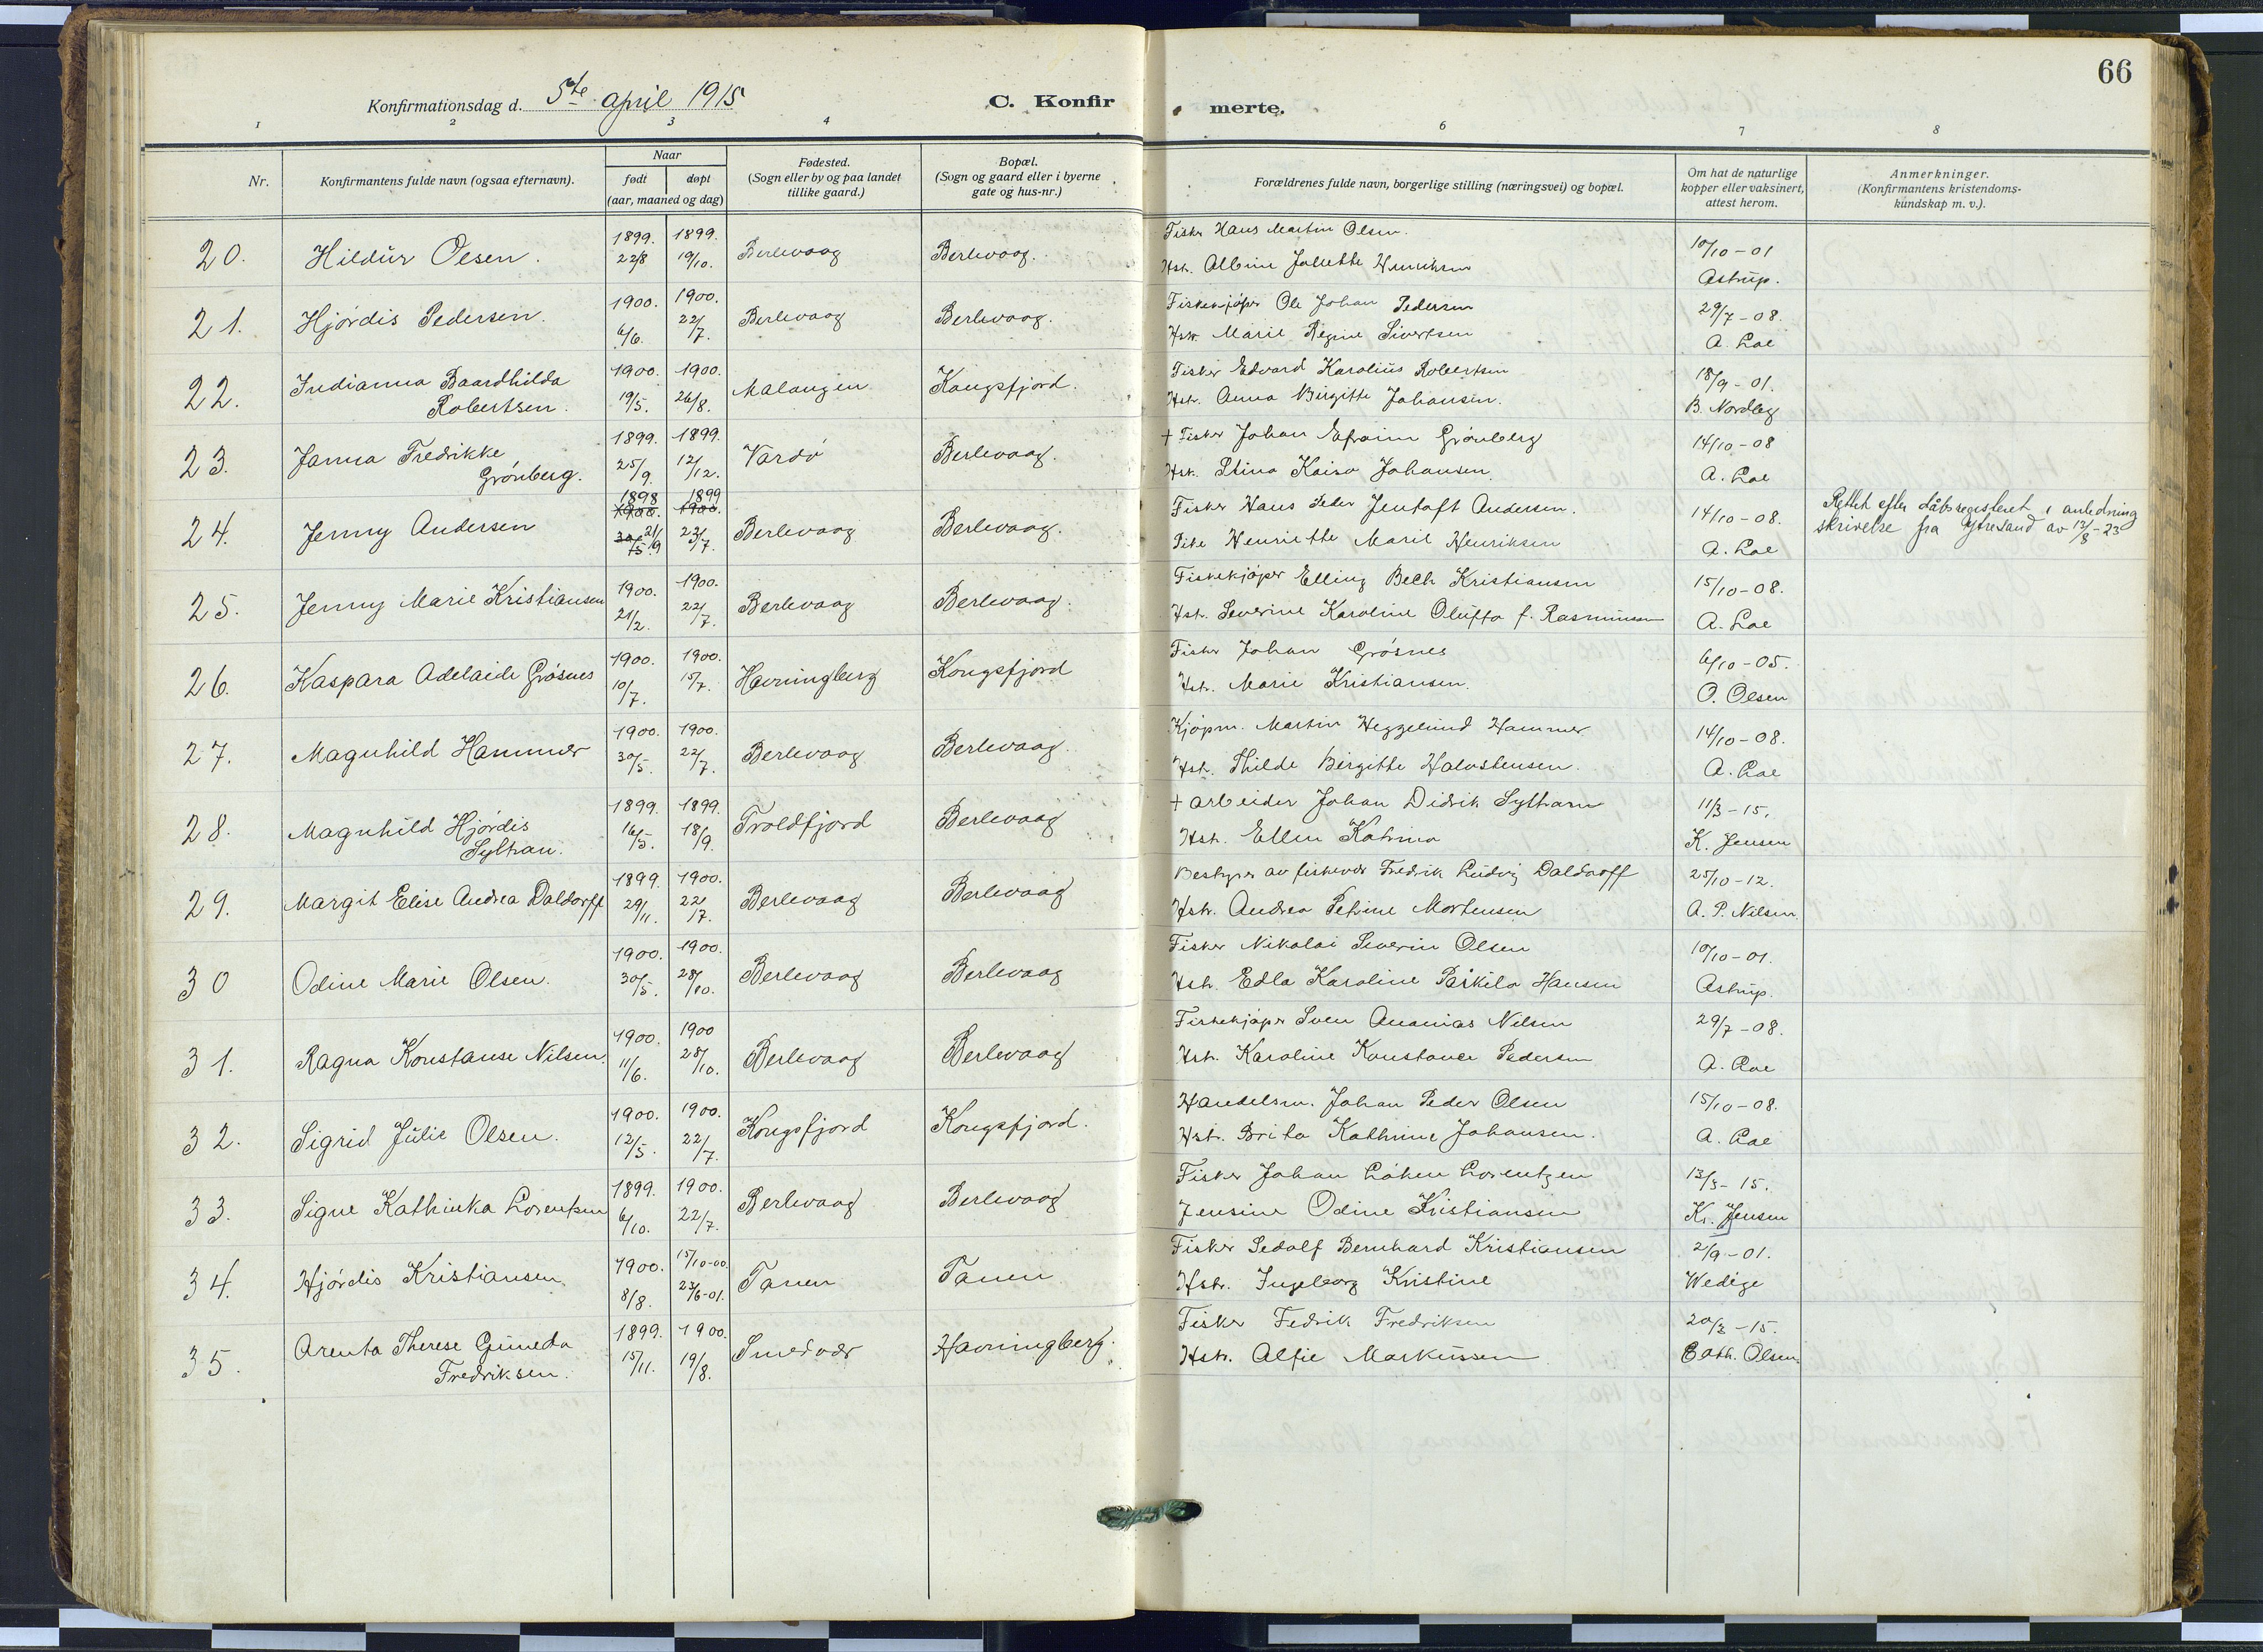 66
Konfirmationsdag d. 5te april 1915
C. Konfir
merte.
1 2 3 4 6 7 8
Nr.
Konfirmantens fulde navn (ogsaa efternavn).
Naar
født døpt
(aar, maaned og dag)
Fødested.
(Sogn eller by og paa landet
tillike gaard.)
Bopæl.
(Sogn og gaard eller i byerne
gate og hus-nr.)
Forældrenes fulde navn, borgerlige stilling (næringsvei) og bopæl.
Om hat de naturlige
kopper eller vaksinert,
attest herom.
Anmerkninger.
(Konfirmantens kristendoms-
kundskap m. v.).
1899. 1899. Fisker Hans Martin Olsen. 10/10-01
20. Hildur Olsen. 22/8 19/10. Berlevaag Berlevaag. Hstr. Albine Juliette Henriksen Astrup.
1900. 1900. Fiskekjøper Ole Johan Pedersen 29/7-08.
21. Hjørdis Pedersen. 6/6. 22/7. Berlevaag Berlevaag. Hstr. Marie Regine Sivertsen A. Lae
Indianna Baardhilda 1900. 1900. Fisker Edvard Karolius Robertsen 18/9-01.
22. Robertsen. 19/5. 26/8. Malangen Kongsfjord. Hstr. Anna Birgitte Johansen. B. Nordbeg
Janna Fredrikke 1899. 1899. + Fisker Johan Efraim Grønberg 14/10-08
23. Grønberg. 25/9. 12/12. Vardø Berlevaag. Hstr. Stina Kaisa Johansen. A. Lae
1898 1899
1900. 1900. Fisker Hans Peder Jentoft Andersen. 14/10-08. Rettet efter dåbsregisteret i anledning
24. Jenny Andersen 30/5 21/9 23/7. Berlevaag Berlevaag. Pike Henriette Marie Henriksen A. Lae skrivelse fra Ytresand av 13/8-23
1900. 1900. Fiskekjøper Elling Bech Kristiansen 15/10-08.
25. Jenny Marie Kristiansen 21/2. 22/7. Berlevaag Berlevaag. Hstr. Severine Karoline Oluffa f. Rasmussen A. Lae
1900. 1900. Fisker Johan Grøsnes 6/10-05.
26. Kaspara Adelaide Grøsnes 10/7. 15/7. Havningberg Kongsfjord Hstr. Marie Kristiansen. O. Olsen
1900. 1900. Kjøpm. Martin Heggelund Hammer 14/10-08.
27. Magnhild Hammer 30/5. 22/7. Berlevaag Berlevaag. Hstr. Thilde Birgitte Halvstensen. A. Lae
1899. 1899. + arbeider Johan Didrik Syltharn 11/3-15.
28. Magnhild Hjørdis 16/5. 18/9. Troldfjord Berlevaag Hstr. Ellen Katrina K. Jensen
Sylthan.
1899. 1900. Bestyrer av fiskevær Fredrik Ludvig Daldorff 25/10-12.
29. Margit Elise Andrea Daldorff 29/11. 22/7. Berlevaag Berlevaag Hstr. Andrea Petrine Mortensen A. P. Nilsen.
1900. 1900. Fisker Nikolai Severin Olsen 10/10-01.
30 Odine Marie Olsen. 30/5. 28/10. Berlevaag Berlevaag Hstr. Edla Karoline Påskila Hansen Astrup.
1900. 1900 Fiskekjøper Sven Ananias Nilsen 29/7-08.
31. Ragna Konstanse Nilsen. 11/6. 28/10. Berlevaag Berlevaag Hstr. Karoline Konstance Pedersen A. Lae
1900. 1900. Handelsm. Johan Peder Olsen 15/10-08.
32. Sigrid Julie Olsen. 12/5. 22/7. Kongsfjord Kongsfjord. Hstr. Brita Kathrine Johansen. A. Lae
1899. 1900. Fisker Johan Løken Lorentzen 13/3-15.
33. Signe Kathinka Lorentsen 6/10. 22/7. Berlevaag Berlevaag Jensine Odine Kristiansen Kr. Jensen
1900. 15/10-00. Fisker Sedolf Bernhard Kristiansen 2/9-01.
34. Hjørdis Kristiansen. 8/8. 23/6-01. Tanen Tanen Hstr. Ingeborg Kristine Wedege
Arenta Therese Guneda 1899. 1900. Fisker Fedrik Fredriksen 20/3-15.
35. Fredriksen. 15/11. 19/8. Smedvær Havningberg. Hstr. Alfie Markussen Cath. Olsen